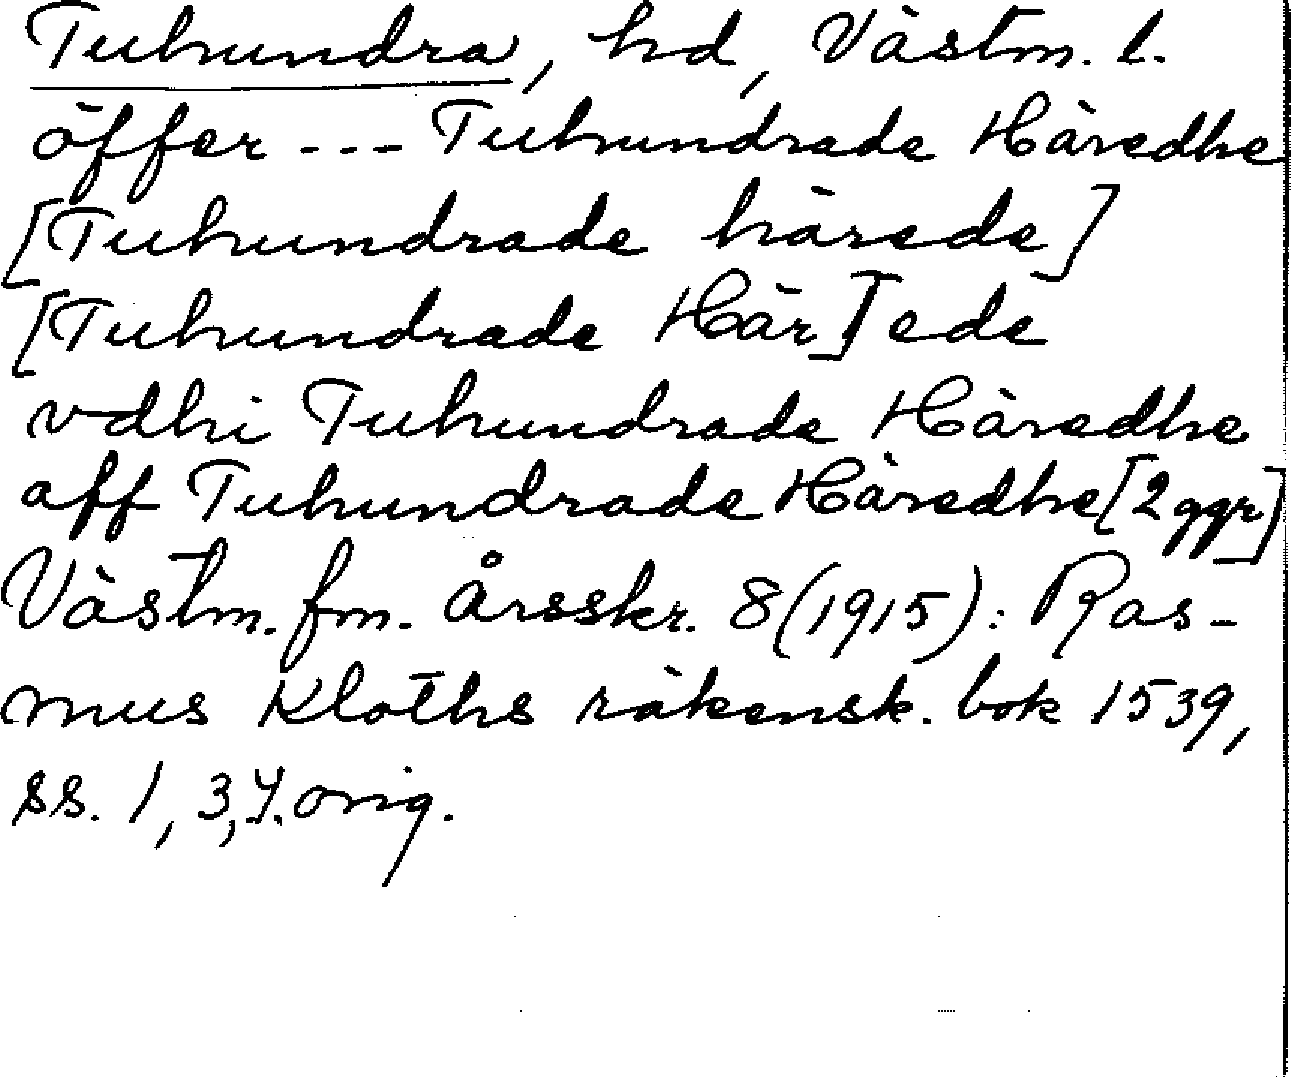 Tuhundra, hd, Västm. l.
öffer --- Tuhundrade Häredhe
[Tuhundrade härede]
[Tuhundrade Här]ede
vdhi Tuhundrade Häredhe
aff Tuhundrade Häredhe [2 ggr]
Västm. fm. Årsskr. 8 (1915): Ras-
mus Kloths räkensk. bok 1539,
ss. 1, 3, 4. orig.